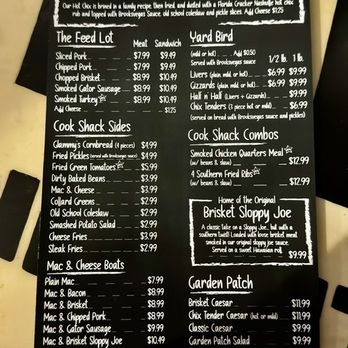 Our Hot Chix is brined in a family recipe, then fried and dusted with a Florida Cracker Nashville hot chix
rub and topped with Brooksvegas Sauce, old school coleslaw and pickle slices. Add Cheese $1.25
The Feed Lot
Meat Sandwich
Sliced Pork $7.99 $9.49
Chipped Pork $7.99 $9.49
Chopped Brisket $8.99 $10.49
Smoked Gator Sausage $8.99 $10.49
Smoked Turkey $8.99 $10.49
Add Cheese $1.25
Cook Shack Sides
Clammy's Cornbread (4 pieces) $4.99
Fried Pickles (served with Brooksvegas sauce) $4.99
Fried Green Tomatoes $5.99
Dirty Baked Beans $3.99
Mac & Cheese $3.99
Collard Greens $2.99
Old School Coleslaw $2.99
Smashed Potato Salad $2.99
Cheese Fries $3.99
Steak Fries $2.99
Mac & Cheese Boats
Plain Mac $7.99
Mac & Bacon $8.99
Mac & Brisket $9.99
Mac & Chipped Pork $8.99
Mac & Gator Sausage $9.99
Mac & Brisket Sloppy Joe $10.49
Yard Bird
(mild or hot) Add $0.50
Served with Brooksvegas sauce
1/2 lb. 1 lb.
Livers (plain mild or hot) $6.99 $9.99
Gizzards (plain mild or hot) $6.99 $9.99
Half n' Half (Livers + Gizzards) $9.99
Chix Tenders (3 piece hot or mild) $6.99
(served on bread with Brooksvegas sauce and pickles)
Cook Shack Combos
Smoked Chicken Quarters Meal
(w/ beans & slaw) $12.99
4 Southern Fried Ribs
(w/ beans & slaw) $12.99
Home of the Original
Brisket Sloppy Joe
A classic take on a Sloppy Joe, but with a
southern twist! Loaded with loose brisket meat
smoked in our original sloppy joe sauce.
Served on a sweet Hawaiian roll
$9.99
Garden Patch
Brisket Caesar $11.99
Chix Tender Caesar (hot or mild) $11.99
Classic Caesar $9.99
Garden Patch Salad $9.99